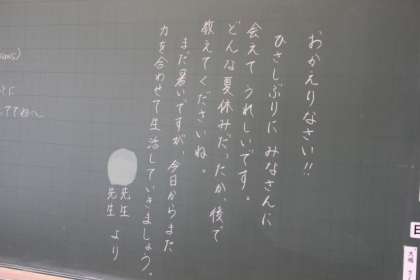 おかえりなさい!!
ひさしぶりに みなさんに
会えてうれしいです。
どんな夏休みだったか、後で
教えてくださいね。
まだ暑いですが、今日からまた
力を合わせて生活していきましょう。
先生
先生 より